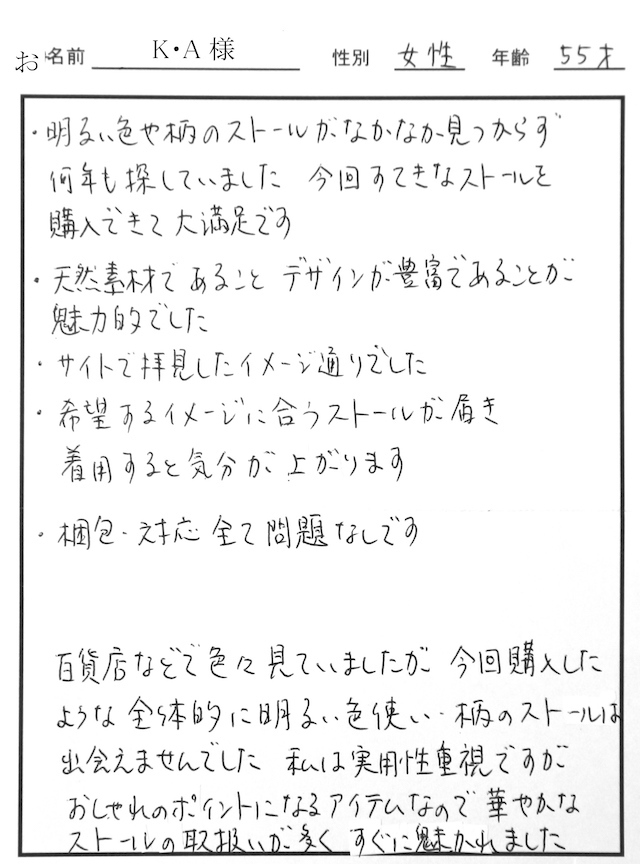 お名前 K・A 様 性別 女性 年齢 55才
・明るい色や柄のストールがなかなか見つからず
何年も探していました 今回すてきなストールを
購入できて大満足です
・天然素材であること デザインが豊富であることが
魅力的でした
・サイトで拝見したイメージ通りでした
・希望するイメージに合うストールが届き
着用すると気分が上がります
・梱包・対応 全て問題なしです
百貨店などで色々見ていましたが 今回購入した
ような全体的に明るい色使い・柄のストールは
出会えませんでした 私は実用性重視ですが
おしゃれのポイントになるアイテムなので華やかな
ストールの取扱いが多く すぐに魅かれました